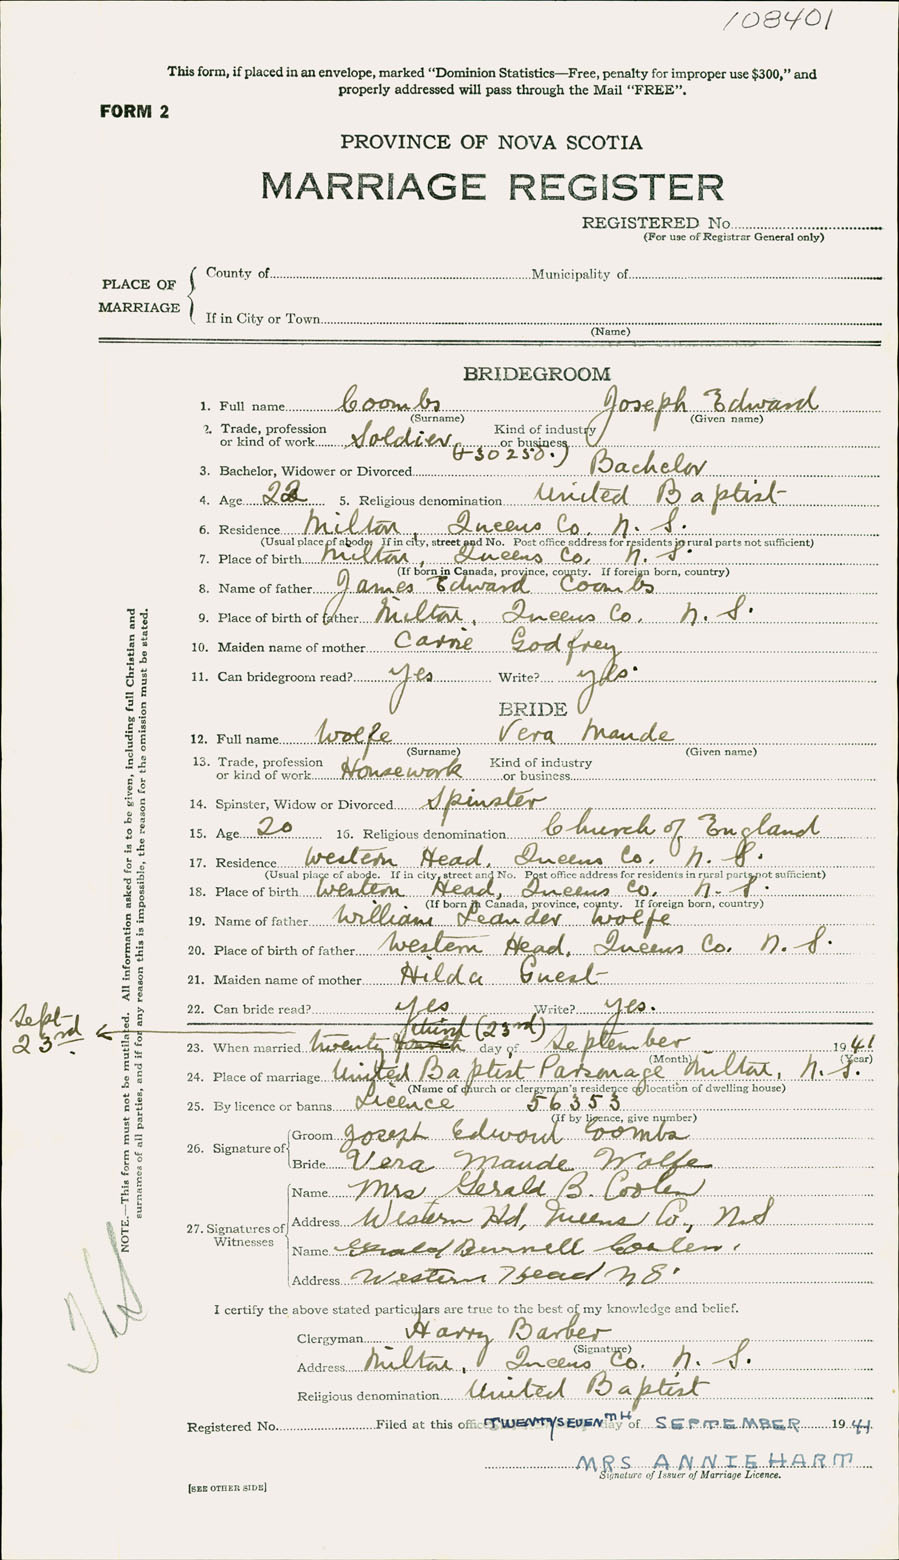 108401
This form, if placed in an envelope, marked "Dominion Statistics—Free, penalty for improper use $300," and
properly addressed will pass through the Mail "FREE".
FORM 2
PROVINCE OF NOVA SCOTIA
MARRIAGE REGISTER
REGISTERED No.
(For use of Registrar General only)
PLACE OF MARRIAGE
County of Municipality of
If in City or Town
(Name)
BRIDEGROOM
1. Full name Coombs Joseph Edward
(Surname) (Given name)
2. Trade, profession or kind of work Soldier Kind of industry or business
(F30250.)
3. Bachelor, Widower or Divorced Bachelor
4. Age 22 5. Religious denomination United Baptist
6. Residence Milton, Queens Co. N. S.
(Usual place of abode. If in city, street and No. Post office address for residents in rural parts not sufficient)
7. Place of birth Milton, Queens Co. N. S.
(If born in Canada, province, county. If foreign born, country)
8. Name of father James Edward Coombs
9. Place of birth of father Milton, Queens Co. N. S.
10. Maiden name of mother Carrie Godfrey
11. Can bridegroom read? Yes Write? yes.
BRIDE
12. Full name Wolfe Vera Maude
(Surname) (Given name)
13. Trade, profession or kind of work Housework Kind of industry or business
14. Spinster, Widow or Divorced Spinster
15. Age 20 16. Religious denomination Church of England
17. Residence Western Head, Queens Co. N. S.
(Usual place of abode. If in city, street and No. Post office address for residents in rural parts not sufficient)
18. Place of birth Western Head, Queens Co. N. S.
(If born in Canada, province, county. If foreign born, country)
19. Name of father William Leander Wolfe
20. Place of birth of father Western Head, Queens Co. N. S.
21. Maiden name of mother Hilda Guest
22. Can bride read? yes Write? yes.
Sept 23rd
third (23rd)
23. When married twenty fourth day of September 1941
(Month) (Year)
24. Place of marriage United Baptist Parsonage Milton, N. S.
(Name of church or clergyman's residence or location of dwelling house)
25. By licence or banns Licence 56353
(If by licence, give number)
26. Signature of
Groom Joseph Edward Coombs
Bride Vera Maude Wolfe
27. Signatures of Witnesses
Name Mrs Gerald B. Coolen
Address Western Hd, Queens Co, N.S
Name Gerald Burnell Coolen
Address Western Head NS.
I certify the above stated particulars are true to the best of my knowledge and belief.
Clergyman Harry Barber
(Signature)
Address Milton, Queens Co. N. S.
Religious denomination United Baptist
Registered No. Filed at this office TWENTYSEVENTH day of SEPTEMBER 1941
MRS ANNIE HARTT
Signature of Issuer of Marriage Licence.
[SEE OTHER SIDE]
NOTE.—This form must not be mutilated. All information asked for is to be given, including full Christian and
surnames of all parties, and if for any reason this is impossible, the reason for the omission must be stated.